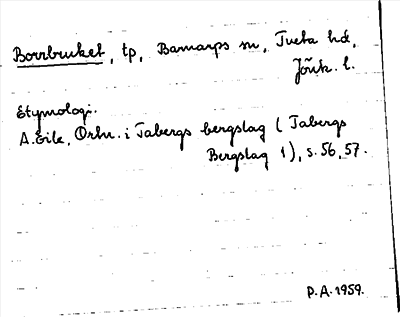 Borrbruket, tp, Barnarps sn, Tveta hd,
Jönk. l.
Etymologi.
A. Eile, Ortn. i Tabergs bergslag (Tabergs
Bergslag 1), s. 56, 57.
P.A. 1959.